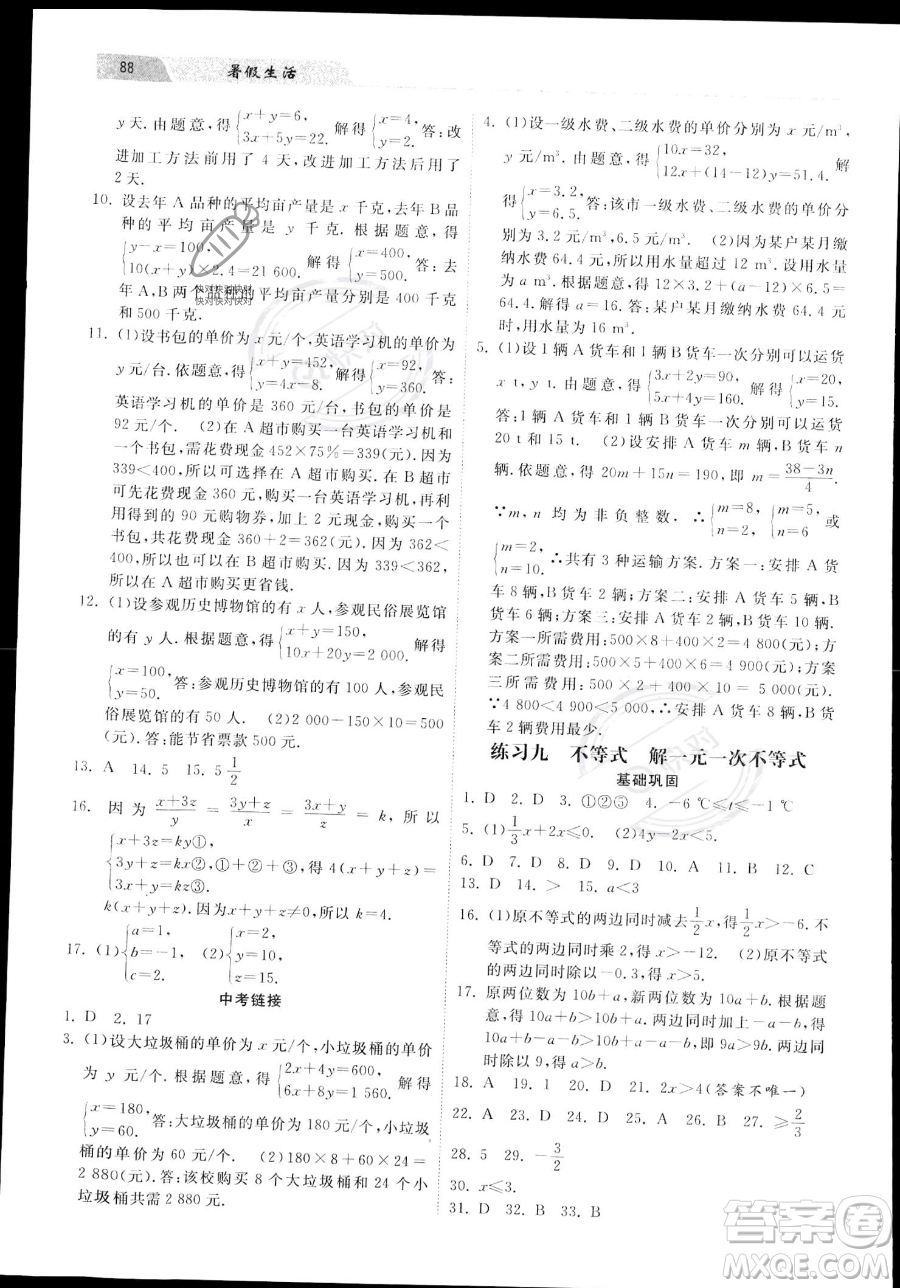 88 暑假生活
y天. 由题意,得{x+y=6, 3x+5y=22. 解得{x=4, y=2. 答:改
进加工方法前用了 4 天,改进加工方法后用了
2 天.
10. 设去年 A 品种的平均亩产量是 x 千克,去年 B 品
种的平均亩产量是 y 千克. 根据题意,得
{y-x=100, 10(x+y)×2.4=21 600. 解得{x=400, y=500. 答:去
年 A,B 两个品种的平均亩产量分别是 400 千克
和 500 千克.
11. (1)设书包的单价为 x 元/个,英语学习机的单价为
y 元/台. 依题意,得{x+y=452, y=4x-8. 解得{x=92, y=360. 答:
英语学习机的单价是 360 元/台,书包的单价是
92 元/个. (2)在 A 超市购买一台英语学习机和一
个书包,需花费现金 452×75%=339(元). 因为
339<400,所以可选择在 A 超市购买. 在 B 超市
可先花费现金 360 元,购买一台英语学习机,再利
用得到的 90 元购物券,加上 2 元现金,购买一个书
包,共花费现金 360+2=362(元). 因为 362<
400,所以也可以选择在 B 超市购买. 因为 339<362,
所以在 A 超市购买更省钱.
12. (1)设参观历史博物馆的有 x 人,参观民俗展览馆
的有 y 人. 根据题意,得{x+y=150, 10x+20y=2 000. 解得
{x=100, y=50. 答:参观历史博物馆的有 100 人,参观民
俗展览馆的有 50 人. (2)2 000-150×10=500
(元). 答:能节省票款 500 元.
13. A 14. 5 15. 5 1/2
16. 因为 (x+3z)/y = (3y+x)/z = (3z+y)/x = k, 所以
{x+3z=ky①, 3y+x=kz②, 3z+y=kx③. ①+②+③,得 4(x+y+z)=
k(x+y+z). 因为x+y+z≠0,所以 k=4.
17. (1){a=1, b=-1, c=2. (2){x=2, y=3, z=15.
中考链接
1. D 2. 17
3. (1)设大垃圾桶的单价为 x 元/个,小垃圾桶的单价
为 y 元/个. 根据题意,得{2x+4y=600, 6x+8y=1 560. 解得
{x=180, y=60. 答:大垃圾桶的单价为 180 元/个,小垃圾
桶的单价为 60 元/个. (2)180×8+60×24=
2 880(元). 答:该校购买 8 个大垃圾桶和 24 个小
垃圾桶共需 2 880 元.
4. (1)设一级水费、二级水费的单价分别为 x 元/m³,
y 元/m³. 依题意,得{10x=32, 12x+(14-12)y=51.4. 解
得{x=3.2, y=6.5. 答:该市一级水费、二级水费的单价分
别为 3.2 元/m³,6.5 元/m³. (2)因为某户某月缴
纳水费 64.4 元,所以水量超过 12 m³. 设用水量为
a m³. 根据题意,得 12×3.2+(a-12)×6.5=
64.4. 解得 a=16. 答:某户某月缴纳水费 64.4 元
时,用水量为 16 m³.
5. (1)设 1 辆 A 货车和 1 辆 B 货车一次分别可以运货
x t,y t. 由题意,得{3x+2y=90, 5x+4y=160. 解得{x=20, y=15.
答:1 辆 A 货车和 1 辆 B 货车一次分别可以运货
20 t 和 15 t. (2)设安排 A 货车 m 辆,B 货车 n
辆. 依题意,得 20m+15n=190,即 m=(38-3n)/4.
∵m,n 均为非负整数,∴{m=8, n=2或{m=5, n=6或
{m=2, n=10. ∴共有 3 种运输方案. 方案一:安排 A 货车
8 辆,B 货车 2 辆;方案二:安排 A 货车 5 辆,B
货车 6 辆;方案三:安排 A 货车 2 辆,B 货车 10 辆.
方案一所需费用:500×8+400×2=4 800(元);方
案二所需费用:500×5+400×6=4 900(元);方案
三所需费用:500×2+400×10=5 000(元).
∵4 800<4 900<5 000,∴安排 A 货车 8 辆,B 货
车 2 辆费用最少.
练习九 不等式 解一元一次不等式
基础巩固
1. D 2. D 3. ①②⑤ 4. -6 ℃≤t≤-1 ℃
5. (1)1/3x+2x≤0. (2)4y-2x<5.
6. D 7. D 8. D 9. D 10. A 11. B 12. C
13. D 14. > 15. a<3
16. (1)原不等式的两边同时减去1/2x,得1/2x>-6. 不
等式的两边同时乘 2,得 x>-12. (2)原不等式
的两边同时除以-0.3,得 x>-5.
17. 原两位数为 10b+a,新两位数为 10a+b. 根据题
意,得 10a+b>10b+a. 两边同时减去 a+b,得
10a+b-a-b>10b+a-a-b,即 9a>9b. 两边同
时除以 9,得 a>b.
18. A 19. 1 20. D 21. 2x>4(答案不唯一)
22. A 23. D 24. B 25. D 26. A 27. ≥2/3
28. 5 29. -3/2
30. x≤3.
31. D 32. B 33. B
快对快对快对
快对快对快对
答案圈
MXQE.COM